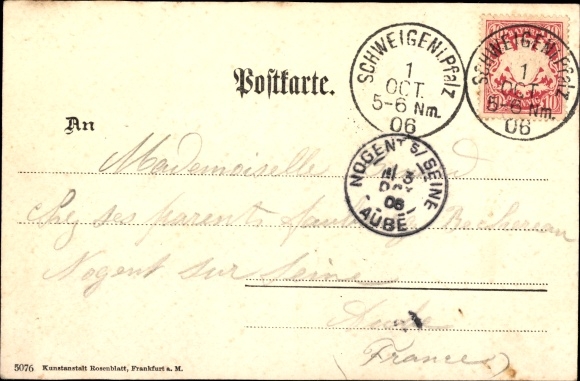 Postkarte.
An
SCHWEIGEN i. Pfalz
1
OCT.
5-6 Nm.
06
SCHWEIGEN i. Pfalz
1
OCT.
5-6 Nm.
06
NOGENT S/ SEINE
3
06
AUBE
Mademoiselle
Chez ses parents
Nogent sur Seine
Aube
(France)
5076 Kunstanstalt Rosenblatt, Frankfurt a. M.